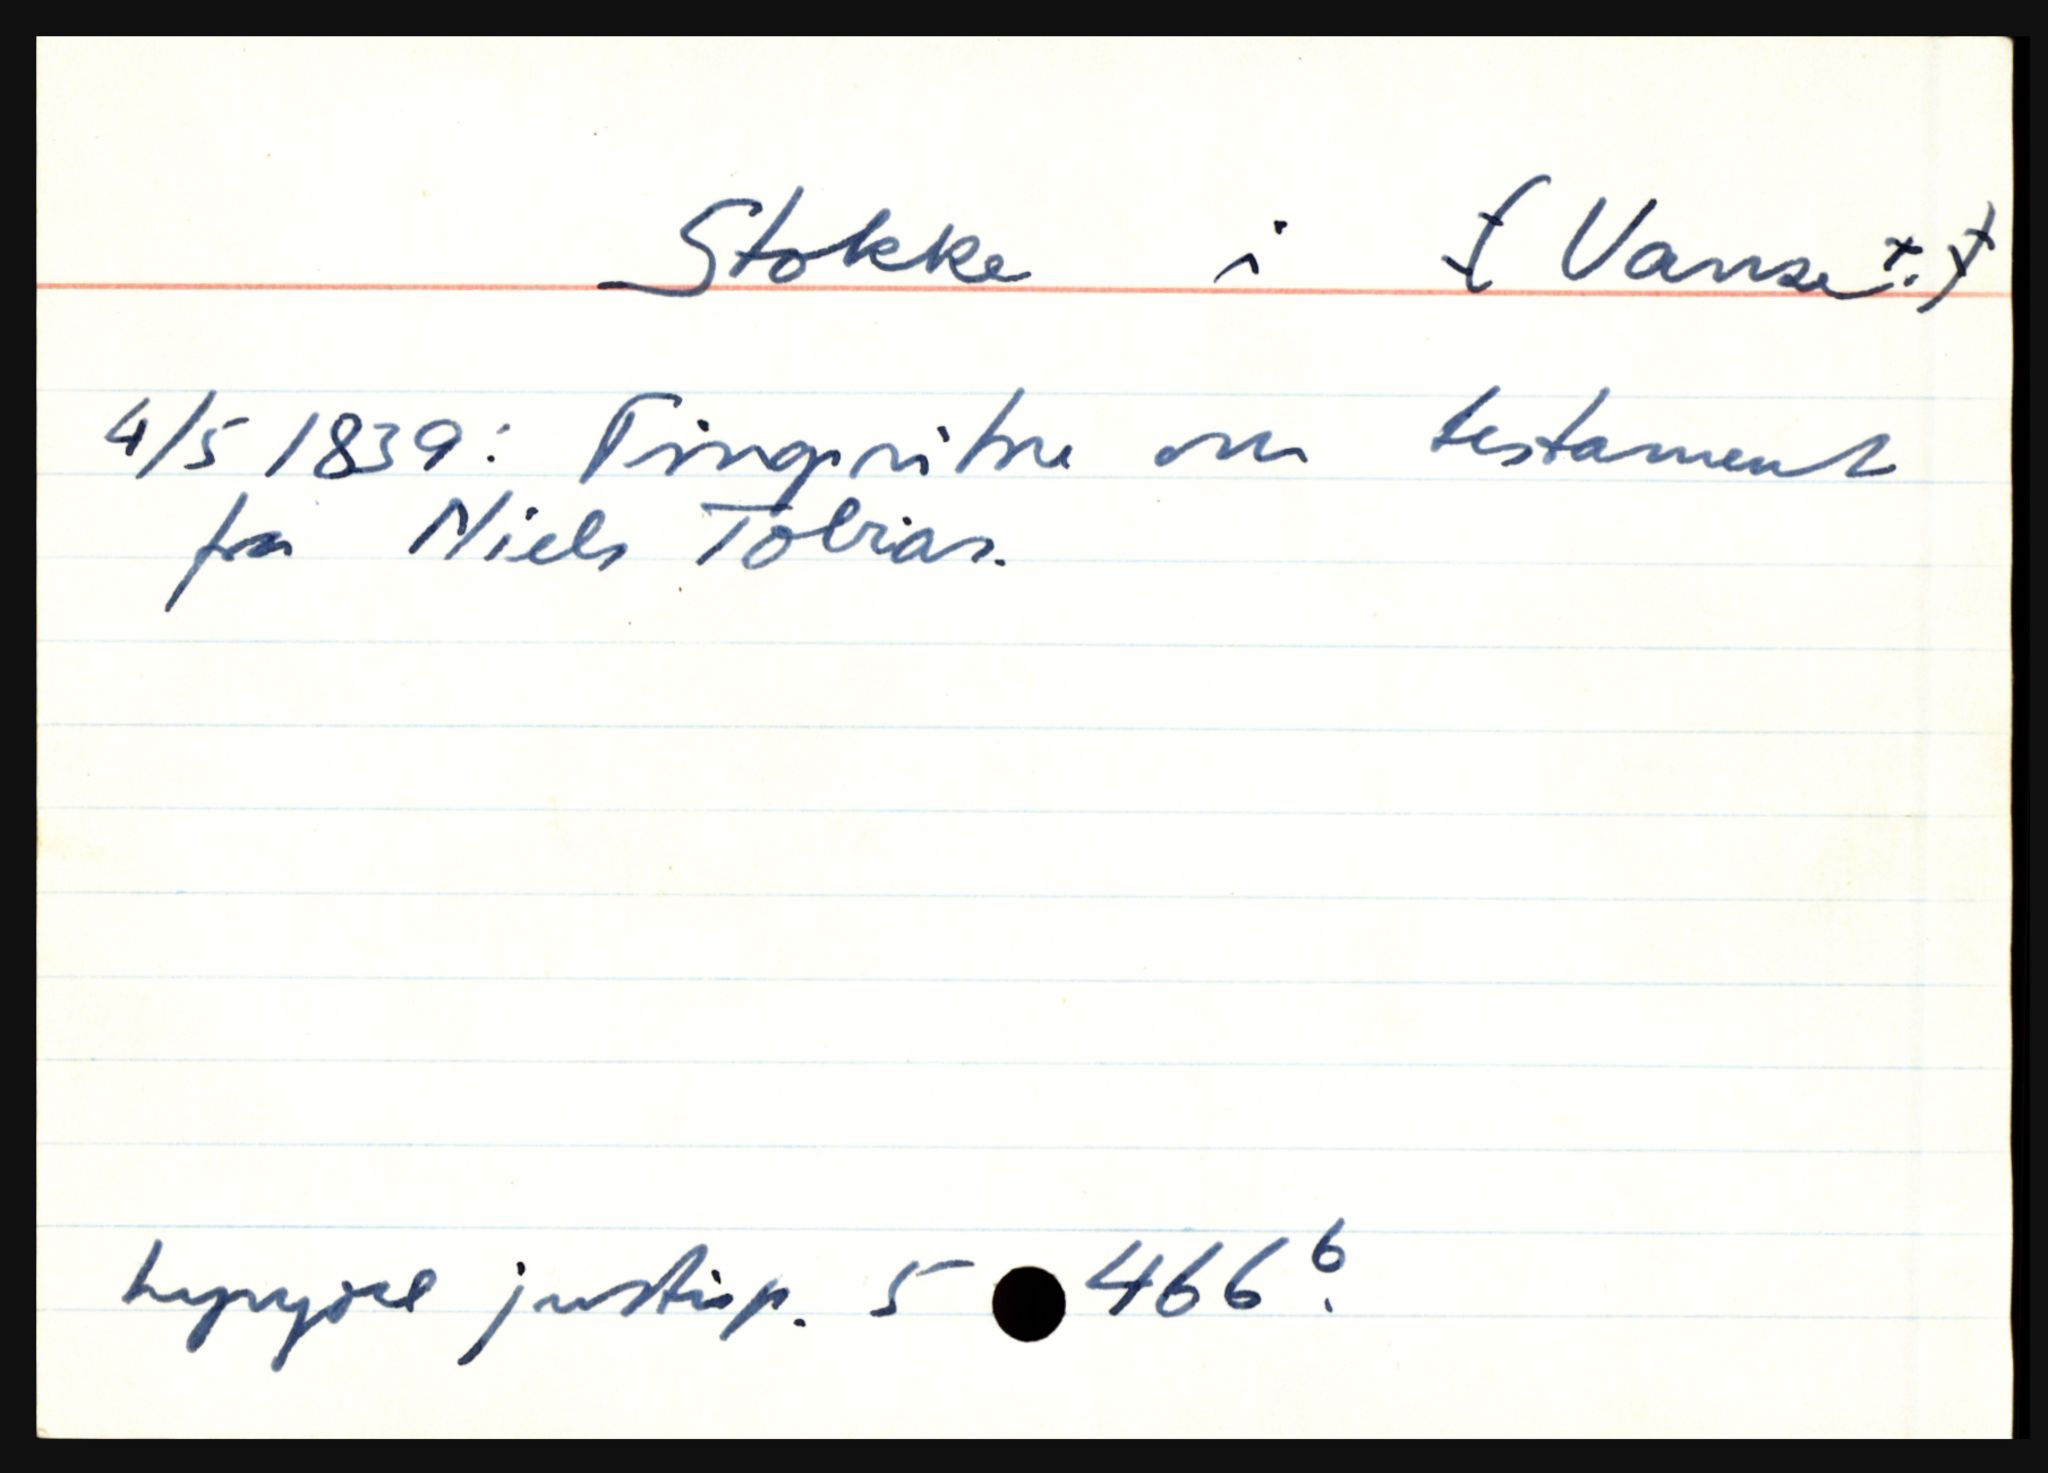 Stokke i (Vanse.)
4/5 1839: Tingsvitne om testament
fra Niels Tobias.
justisp. 5 466 6.